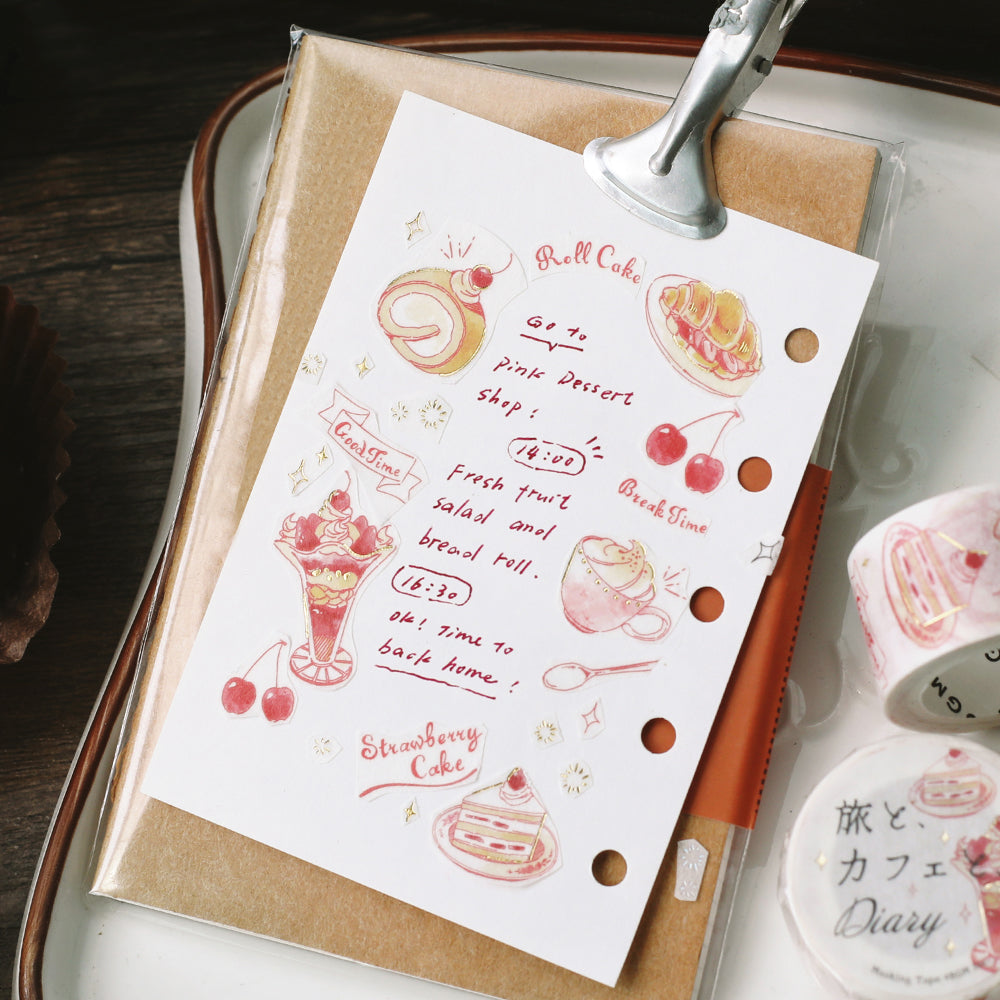 Roll Cake
Go to
Pink Dessert
Shop!
14:00
Good Time
Fresh fruit
salad and
bread roll.
Break Time
16:30
OK! Time to
back home!
Strawberry
Cake
BGM
旅と、
カフェと
Diary
Masking Tape BGM